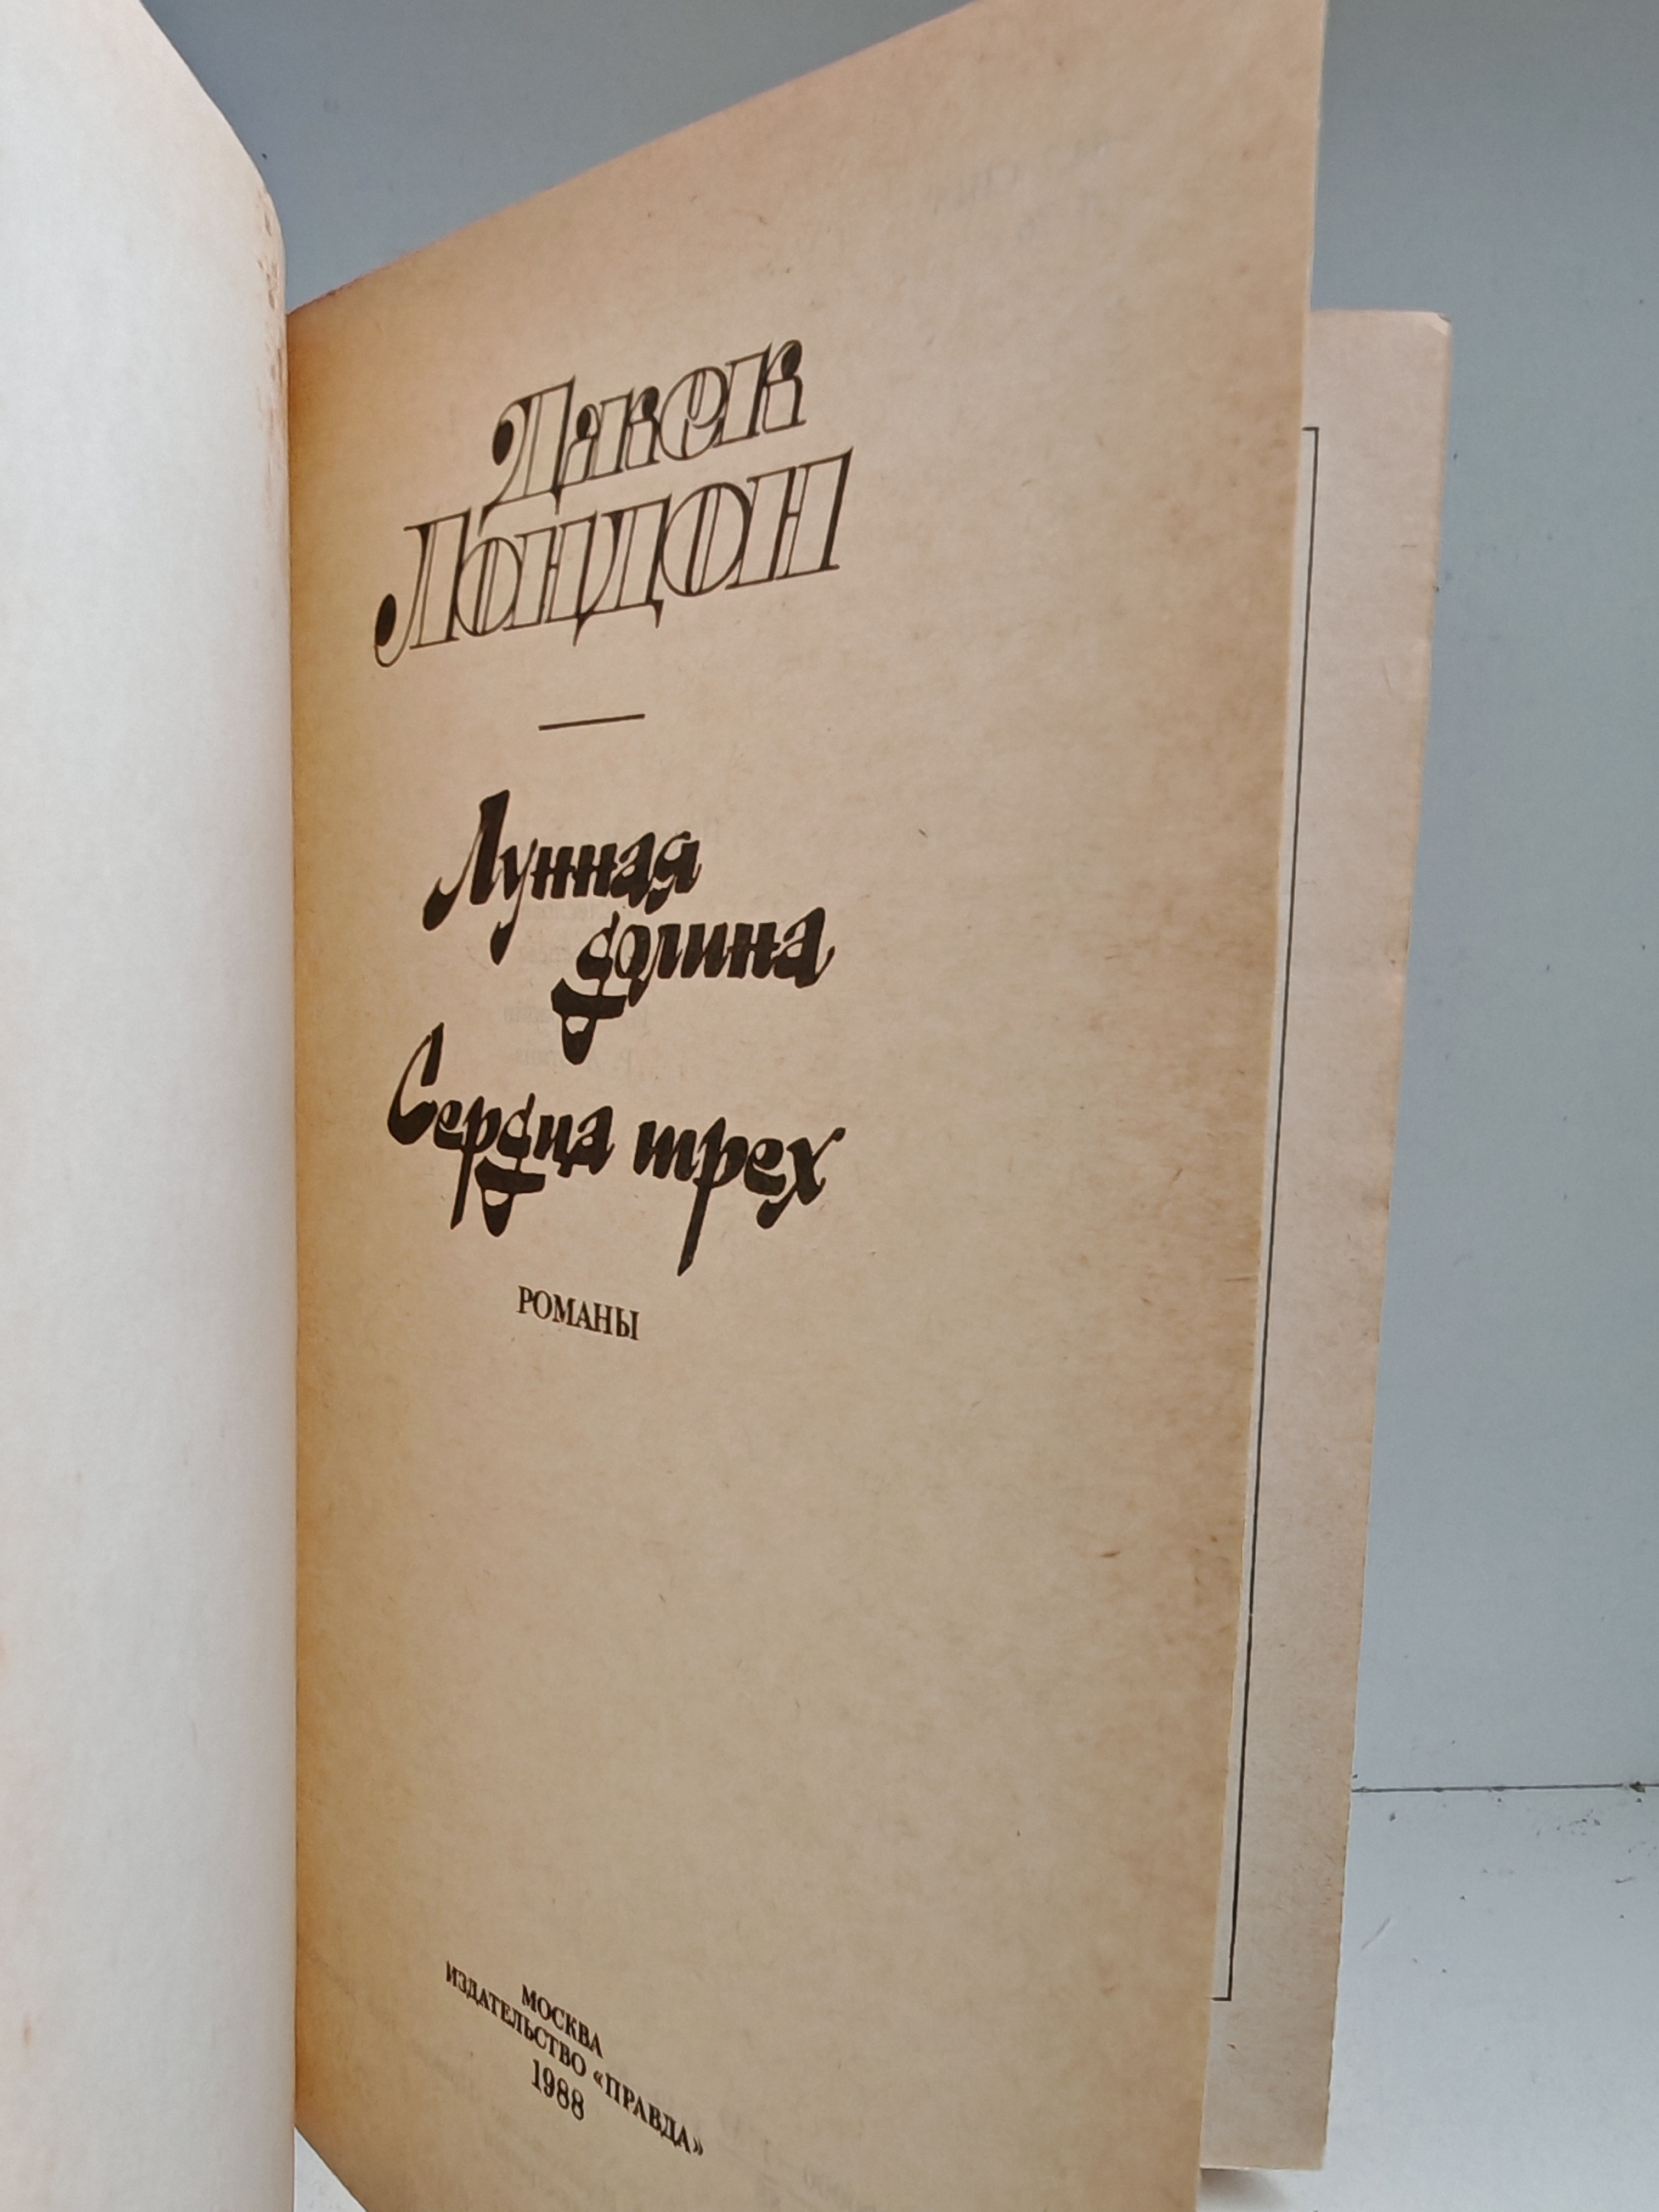 Джек
Лондон
Лунная
долина
Сердца трех
РОМАНЫ
МОСКВА
ИЗДАТЕЛЬСТВО «ПРАВДА»
1988